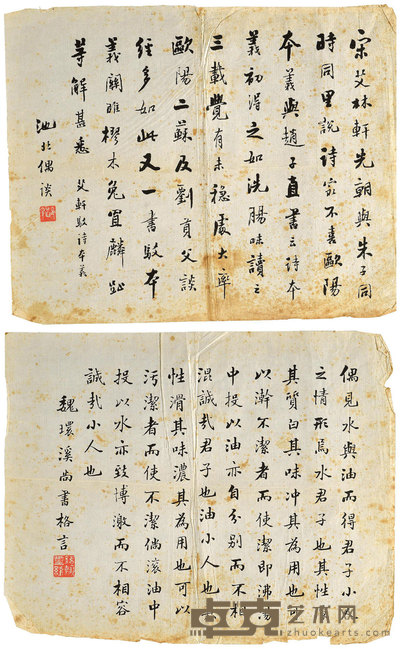 宋艾林軒先朝與朱子同
時同里說詩家不喜歐陽
本義與趙子直書云詩本
義初得之如洗腸味讀之
三載覺有未穩處大率
歐陽二蘇及劉貢父談
經多如此又一書駁本
義關雎樛木兔罝麟趾
等解甚悉 艾軒駁詩本義
池北偶談
偶見水與油而得君子小人
之情形焉水君子也其性
其質白其味冲其為用也可
以澣不潔者而使潔即沸湯
中投以油亦自分別而不相
混誠哉君子也油小人也
性滑其味濃其為用也可以
污潔者而使不潔倘滾油中
投以水亦致博激而不相容
誠哉小人也
魏環溪尚書格言
卓克艺术网
zhuokearts.com